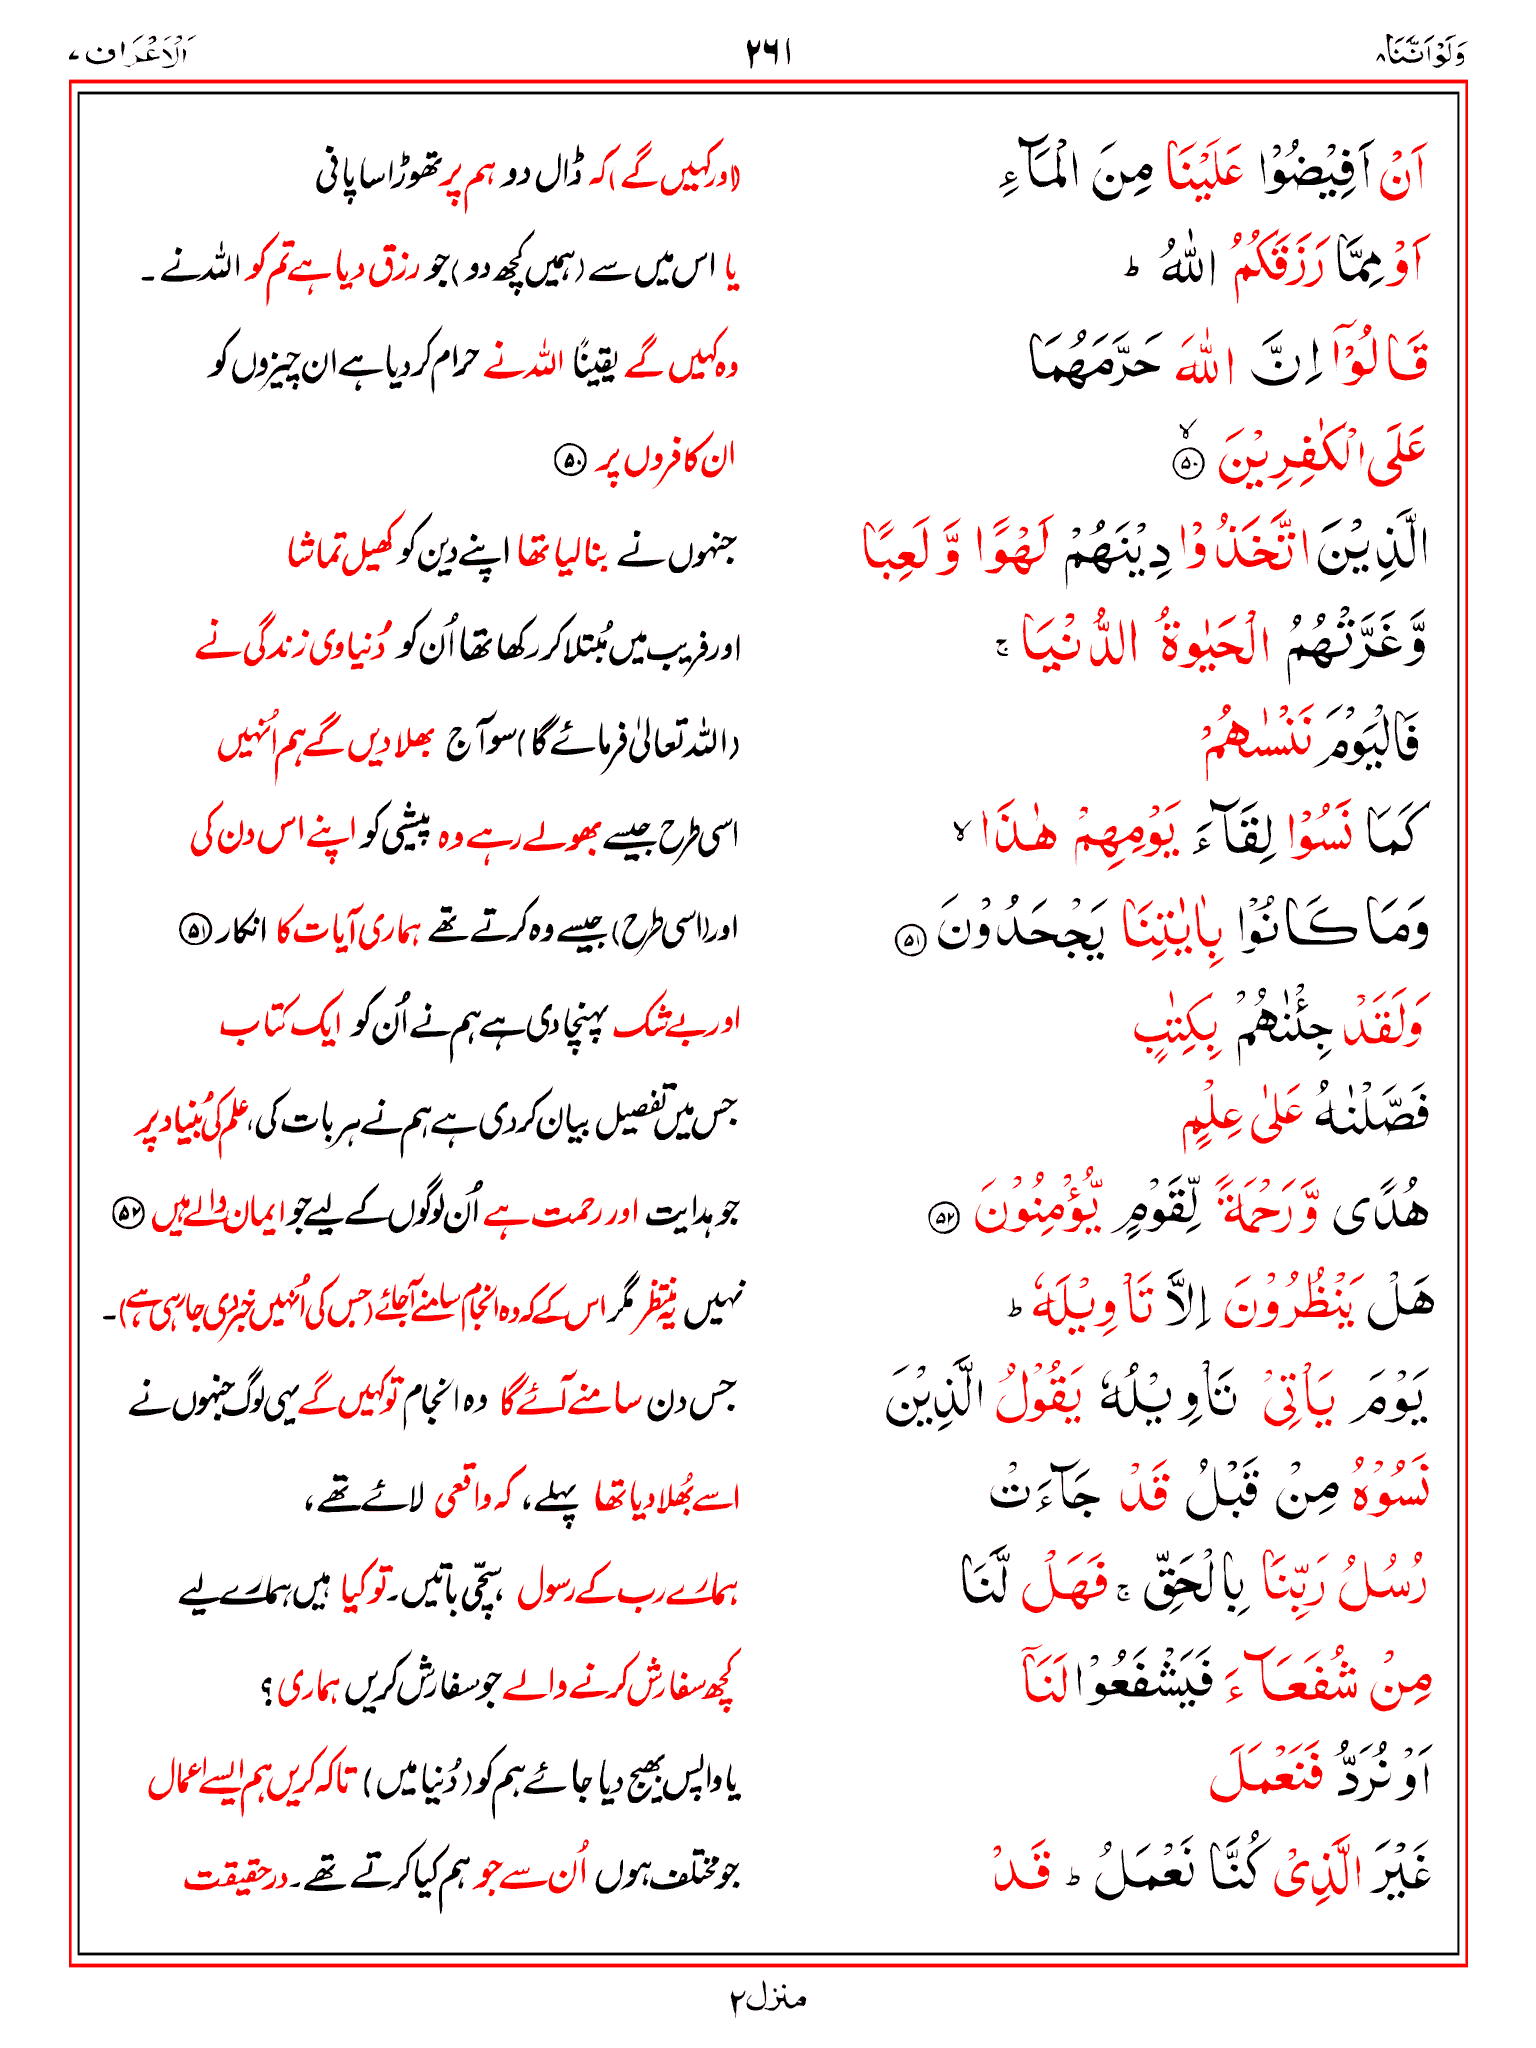 وَلَوْاَنَّنَا۸ ۲۶۱ اَلْاَعْرَاف۷
اَنْ اَفِيْضُوْا عَلَيْنَا مِنَ الْمَآءِ (اور کہیں گے) کہ ڈال دو ہم پر تھوڑا سا پانی
اَوْ مِمَّا رَزَقَكُمُ اللّٰهُ ؕ یا اس میں سے (ہمیں کچھ دو) جو رزق دیا ہے تم کو اللہ نے ۔
قَالُوْۤا اِنَّ اللّٰهَ حَرَّمَهُمَا وہ کہیں گے یقیناً اللہ نے حرام کر دیا ہے ان چیزوں کو
عَلَى الْكٰفِرِيْنَ ۙ۝۵۰ ان کافروں پر ۝۵۰
الَّذِيْنَ اتَّخَذُوْا دِيْنَهُمْ لَهْوًا وَّ لَعِبًا جنہوں نے بنا لیا تھا اپنے دین کو کھیل تماشا
وَّغَرَّتْهُمُ الْحَيٰوةُ الدُّنْيَا ۚ اور فریب میں مُبتلا کر رکھا تھا اُن کو دُنیاوی زندگی نے
فَالْيَوْمَ نَنْسٰىهُمْ (اللہ تعالیٰ فرمائے گا) سو آج بھلا دیں گے ہم اُنہیں
كَمَا نَسُوْا لِقَآءَ يَوْمِهِمْ هٰذَا ۙ اسی طرح جیسے بھولے رہے وہ پیشی کو اپنے اس دن کی
وَمَا كَانُوْا بِاٰيٰتِنَا يَجْحَدُوْنَ ۝۵۱ اور (اسی طرح) جیسے وہ کرتے تھے ہماری آیات کا انکار ۝۵۱
وَلَقَدْ جِئْنٰهُمْ بِكِتٰبٍ اور بے شک پہنچا دی ہے ہم نے اُن کو ایک کتاب
فَصَّلْنٰهُ عَلٰى عِلْمٍ جس میں تفصیل بیان کر دی ہے ہم نے ہر بات کی، علم کی بُنیاد پر
هُدًى وَّرَحْمَةً لِّقَوْمٍ يُّؤْمِنُوْنَ ۝۵۲ جو ہدایت اور رحمت ہے اُن لوگوں کے لیے جو ایمان والے ہیں ۝۵۲
هَلْ يَنْظُرُوْنَ اِلَّا تَاْوِيْلَهٗ ؕ نہیں یہ منتظر مگر اس کے کہ وہ انجام سامنے آجائے (جس کی اُنہیں خبر دی جا رہی ہے)۔
يَوْمَ يَاْتِيْ تَاْوِيْلُهٗ يَقُوْلُ الَّذِيْنَ جس دن سامنے آئے گا وہ انجام تو کہیں گے یہی لوگ جنہوں نے
نَسُوْهُ مِنْ قَبْلُ قَدْ جَآءَتْ اسے بُھلا دیا تھا پہلے، کہ واقعی لائے تھے،
رُسُلُ رَبِّنَا بِالْحَقِّ ۚ فَهَلْ لَّنَا ہمارے رب کے رسول سچّی باتیں۔ تو کیا ہیں ہمارے لیے
مِنْ شُفَعَآءَ فَيَشْفَعُوْا لَنَاۤ کچھ سفارش کرنے والے جو سفارش کریں ہماری؟
اَوْ نُرَدُّ فَنَعْمَلَ یا واپس بھیج دیا جائے ہم کو (دُنیا میں) تاکہ کریں ہم ایسے اعمال
غَيْرَ الَّذِيْ كُنَّا نَعْمَلُ ؕ قَدْ جو مختلف ہوں اُن سے جو ہم کیا کرتے تھے۔ درحقیقت
منزل۲